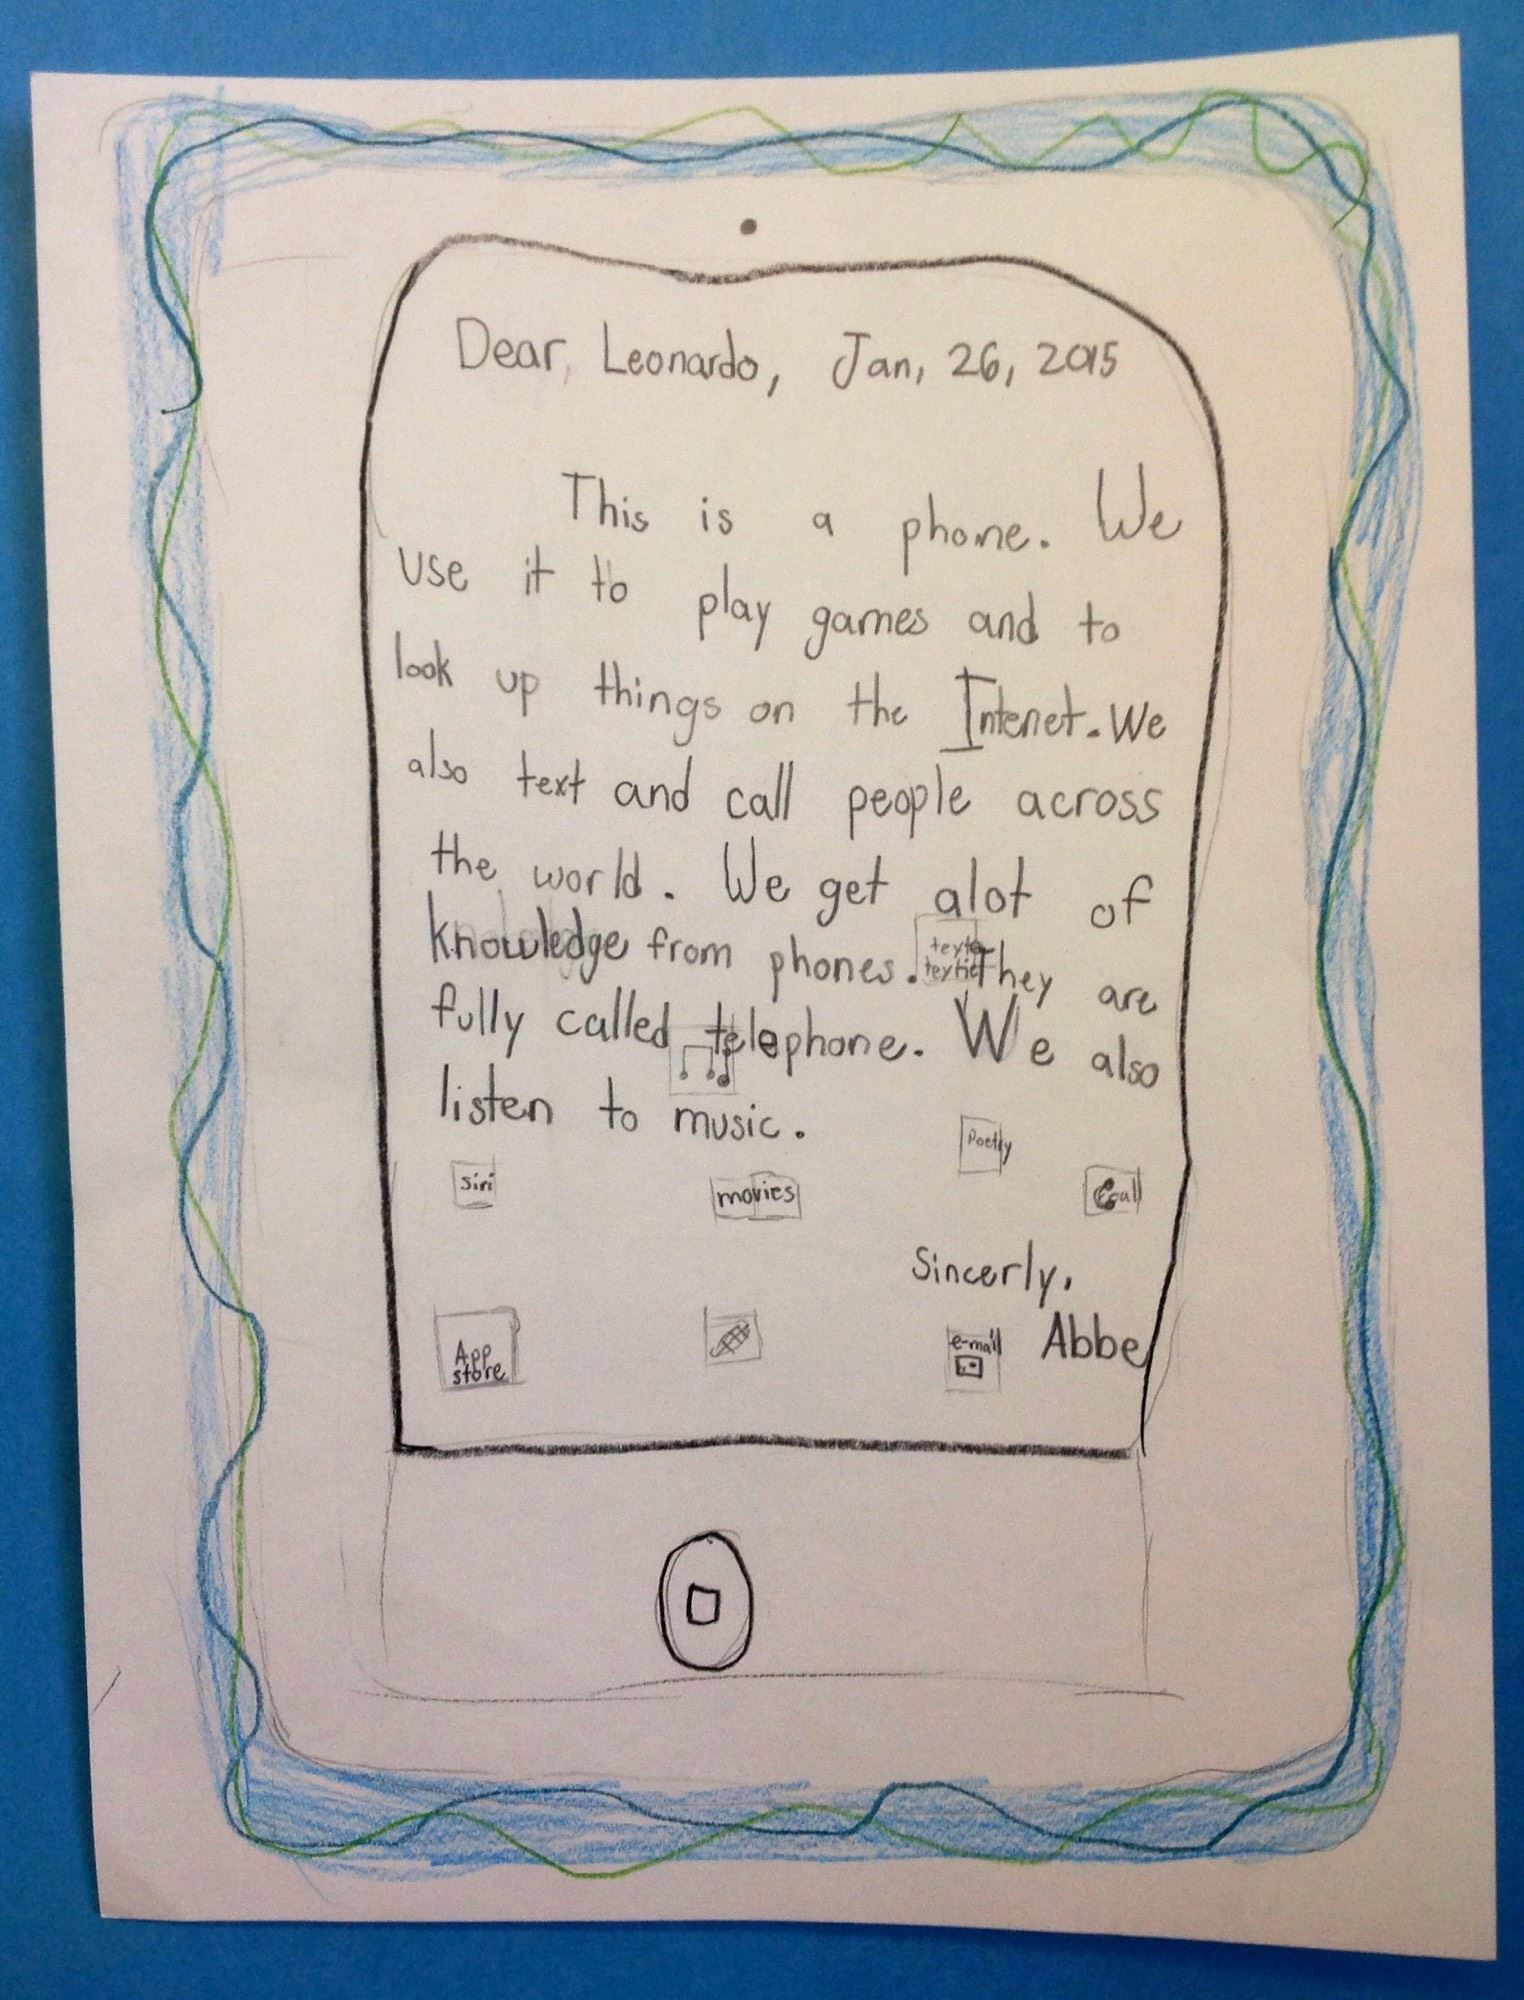 Dear, Leonardo, Jan, 26, 2015
This is a phone. We
use it to play games and to
look up things on the Intenet. We
also text and call people across
the world. We get alot of
knowledge from phones. They are
fully called telephone. We also
listen to music.
Poetry
Siri movies call
Sincerly,
Abbe
App
store
e-mail